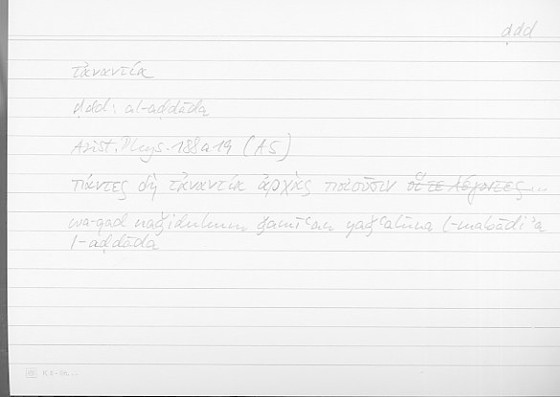 ḍdd
τἀναντία
ḍdd: al-aḍdāda
Arist. Phys. 188a19 (A5)
πάντες δὴ τἀναντία ἀρχὰς ποιοῦσιν οἵ τε λέγοντες...
wa-qad naǧiduhum ǧamīʿan yaǧʿalūna l-mabādiʾa
l-aḍdāda